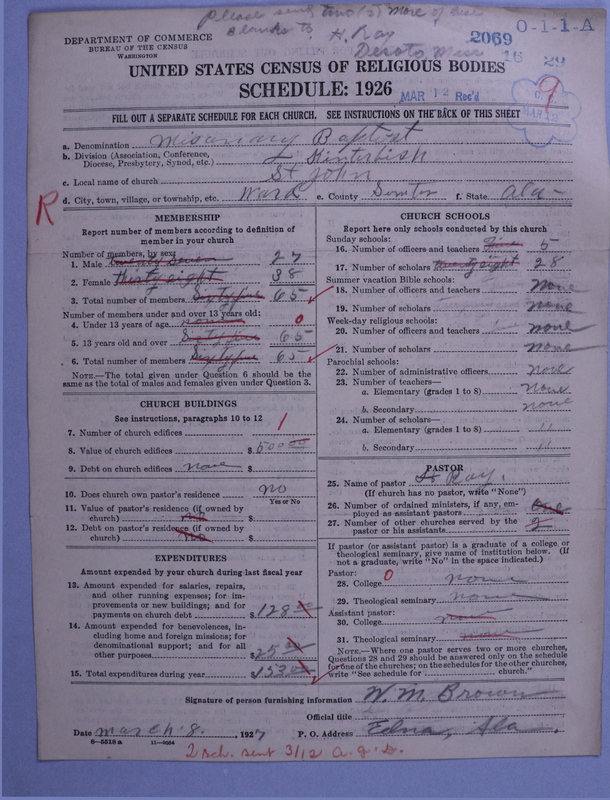 Please send two (2) more of these
Blanks to H. Ray
Desoto Miss
2069 0-1-1-A
16 29
DEPARTMENT OF COMMERCE
BUREAU OF THE CENSUS
WASHINGTON
UNITED STATES CENSUS OF RELIGIOUS BODIES
SCHEDULE: 1926
MAR 12 Rec'd
9
MAR 12
FILL OUT A SEPARATE SCHEDULE FOR EACH CHURCH. SEE INSTRUCTIONS ON THE BACK OF THIS SHEET
a. Denomination Missionary Baptist
b. Division (Association, Conference,
Diocese, Presbytery, Synod, etc.)
c. Local name of church St John
R
d. City, town, village, or township, etc. Ward e. County Sumter f. State Ala-
MEMBERSHIP
Report number of members according to definition of
member in your church
Number of members, by sex:
1. Male twenty seven 27
2. Female thirty eight 38
3. Total number of members Sixty five 65
Number of members under and over 13 years old:
4. Under 13 years of age none 0
5. 13 years old and over Sixty five 65
6. Total number of members Sixty five 65
NOTE.—The total given under Question 6 should be the
same as the total of males and females given under Question 3.
CHURCH BUILDINGS
See instructions, paragraphs 10 to 12
7. Number of church edifices 1
8. Value of church edifices $ 500 00
9. Debt on church edifices none $
10. Does church own pastor's residence no
Yes or No
11. Value of pastor's residence (if owned by
church) no $
12. Debt on pastor's residence (if owned by
church) no $
EXPENDITURES
Amount expended by your church during last fiscal year
13. Amount expended for salaries, repairs,
and other running expenses; for im-
provements or new buildings; and for
payments on church debt $ 128 00
14. Amount expended for benevolences, in-
cluding home and foreign missions; for
denominational support; and for all
other purposes $ 25 00
15. Total expenditures during year $ 153 00
CHURCH SCHOOLS
Report here only schools conducted by this church
Sunday schools:
16. Number of officers and teachers five 5
17. Number of scholars twenty eight 28
Summer vacation Bible schools:
18. Number of officers and teachers none
19. Number of scholars none
Week-day religious schools:
20. Number of officers and teachers none
21. Number of scholars none
Parochial schools:
22. Number of administrative officers none
23. Number of teachers—
a. Elementary (grades 1 to 8) none
b. Secondary none
24. Number of scholars—
a. Elementary (grades 1 to 8) "
b. Secondary "
PASTOR
25. Name of pastor H Ray.
(If church has no pastor, write "None")
26. Number of ordained ministers, if any, em-
ployed as assistant pastors one
27. Number of other churches served by the
pastor or his assistants 2
If pastor (or assistant pastor) is a graduate of a college or
theological seminary, give name of institution below. (If
not a graduate, write "No" in the space indicated.)
Pastor:
28. College 0 none
29. Theological seminary none
Assistant pastor:
30. College none
31. Theological seminary none
NOTE.—Where one pastor serves two or more churches,
Questions 28 and 29 should be answered only on the schedule
for one of the churches; on the schedules for the other churches,
write "See schedule for church."
Signature of person furnishing information W. M. Brown
Official title
Date March 8, 1927 P. O. Address Edna, Ala.
8-5518 a 11-9054
2 sch. sent 3/12 a.g.s.